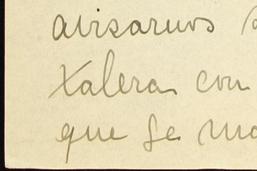 avisarnos
Xalera con
que se